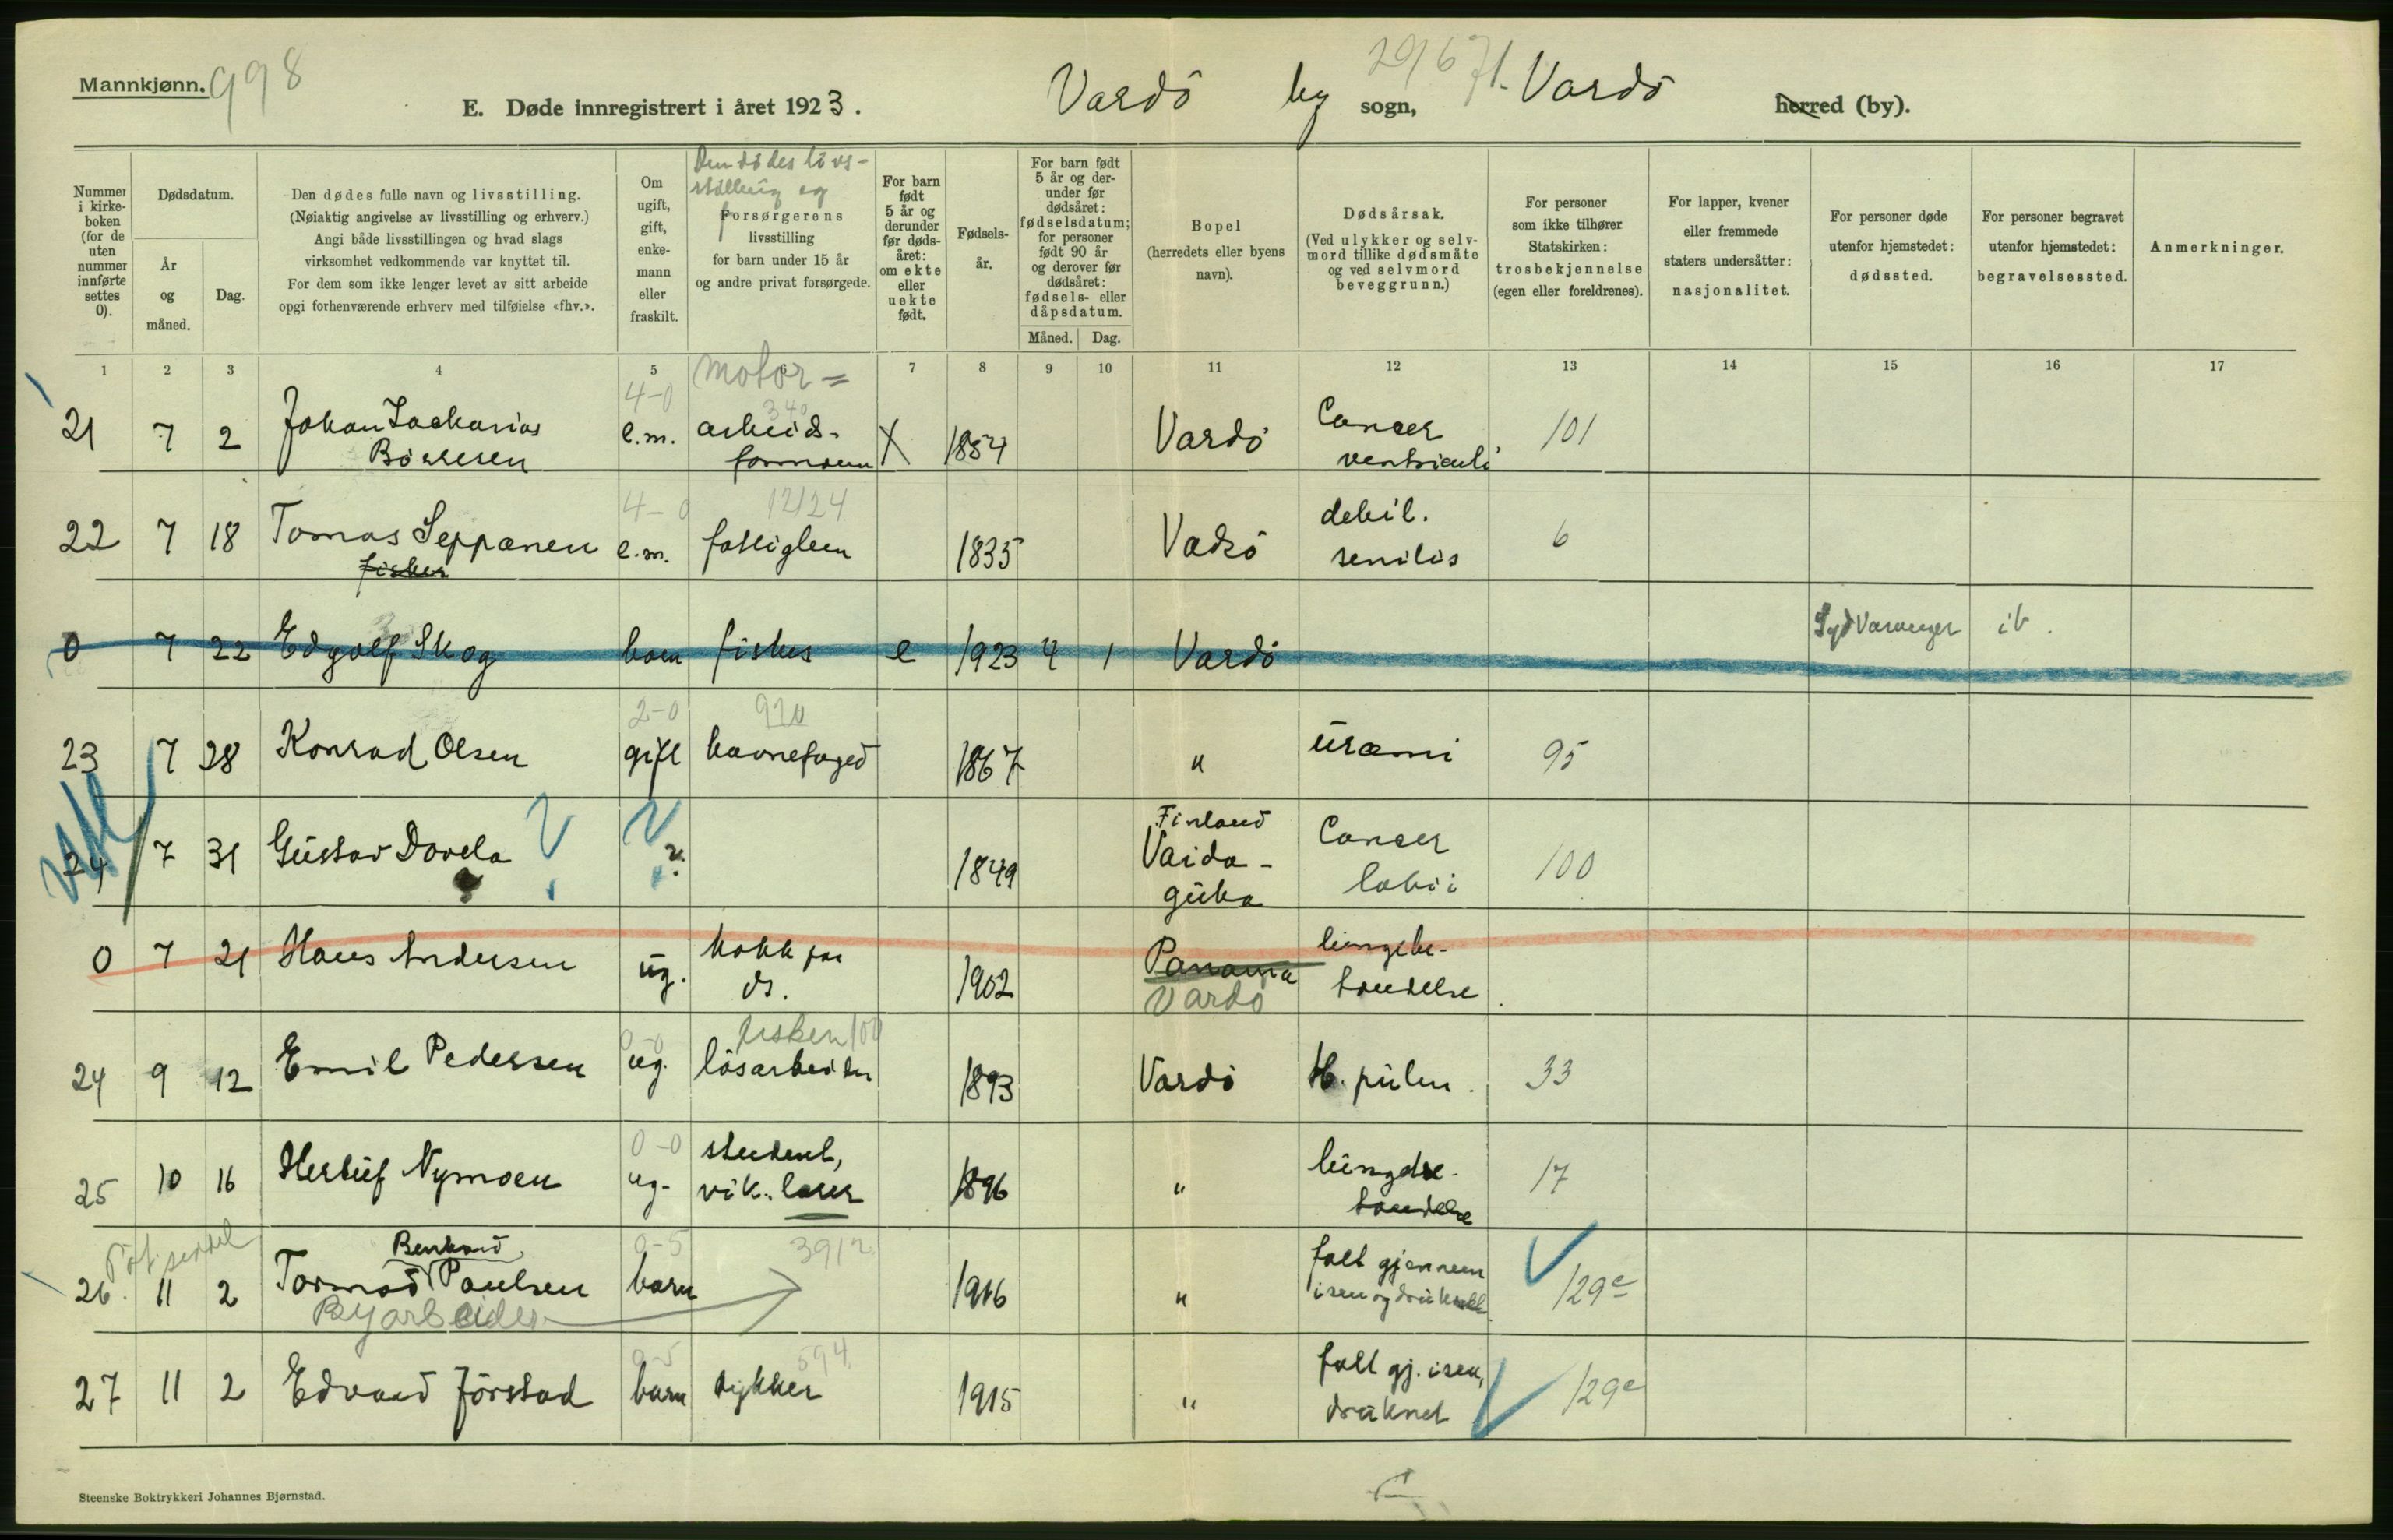 Mannkjønn. 998
2967
E. Døde innregistrert i året 1923. Vardö by sogn, Vardö herred (by).
Nummer i kirkeboken (for de uten nummer innførte settes 0).
Dødsdatum.
År og måned.
Dag.
Den dødes fulle navn og livsstilling.
(Nøiaktig angivelse av livsstilling og erhverv.)
Angi både livsstillingen og hvad slags
virksomhet vedkommende var knyttet til.
For dem som ikke lenger levet av sitt arbeide
opgi forhenværende erhverv med tilføielse «fhv.».
Om ugift, gift, enkemann eller fraskilt.
Den dödes livsstilling og
Forsørgerens
livsstilling
for barn under 15 år
og andre privat forsørgede.
For barn født 5 år og derunder før dødsåret: om ekte eller uekte født.
Fødselsår.
For barn født 5 år og derunder før dødsåret: fødselsdatum; for personer født 90 år og derover før dødsåret: fødsels- eller dåpsdatum.
Måned. Dag.
Bopel
(herredets eller byens
navn).
Dødsårsak.
(Ved ulykker og selvmord tillike dødsmåte og ved selvmord beveggrunn.)
For personer
som ikke tilhører
Statskirken:
trosbekjennelse
(egen eller foreldrenes).
For lapper, kvener
eller fremmede
staters undersåtter:
nasjonalitet.
For personer døde
utenfor hjemstedet:
dødssted.
For personer begravet
utenfor hjemstedet:
begravelsessted.
Anmerkninger.
1 2 3 4 5 6 7 8 9 10 11 12 13 14 15 16 17
4-0 motor= 340
21 7 2 Johan Zackarias Börresen e.m. arbeidsformann X 1854 Vardö Cancer ventriculi 101
4-0 12124
22 7 18 Tomas Seppanen fisker e.m. fattiglem 1835 Vadsö debil. senilis 6
0 7 22 Edgolf Skog barn fisker e 1923 4 1 Vardö Syd Varanger ib.
2-0 920
23 7 28 Konrad Olsen gift havnefoged 1867 " üræmi 95
24 7 31 Güstav Dovela ? ? 1849 Finland Vaidagüba Cancer labii 100
0 7 21 Hans Andersen üg. kokk på ds. 1902 Panama Vardö lüngebetendelse
0-0 fisker 100
24 9 12 Emil Pedersen ug. lösarbeider 1893 Vardö H. pülm. 33
0-0
25 10 16 Herlüf Nymoen ug. student, vik. lærer 1896 " lüngebetendelse 17
0-5 3912
26. 11 2 Tormod Bernhard Paulsen barn 1916 " falt gjennem isen og druknet 129e
Byarbeider
0-5 594
27 11 2 Edvard Jörstad barn dykker 1915 " falt gj. isen, drüknet 129e
Steenske Boktrykkeri Johannes Bjørnstad.